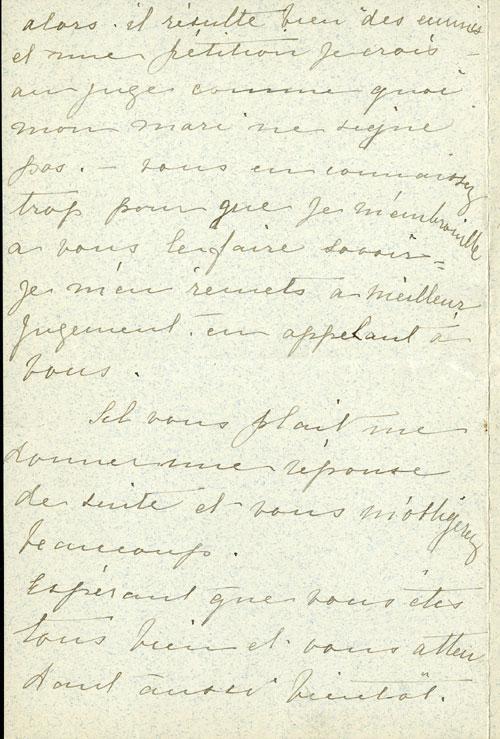 alors. il résulte bien des ennuis
et une pétition je crois -
au juge comme quoi
mon mari ne signe
pas. - vous en connaissez
trop pour que je m'embrouille
a vous le faire savoir =
je m'en remets a meilleur
jugement en appelant à
vous.
Sil vous plait me
donner une réponse
de suite et vous m'obligerez
beaucoup.
Espérant que vous êtes
tous bien et vous atten
dant aussi bientôt.